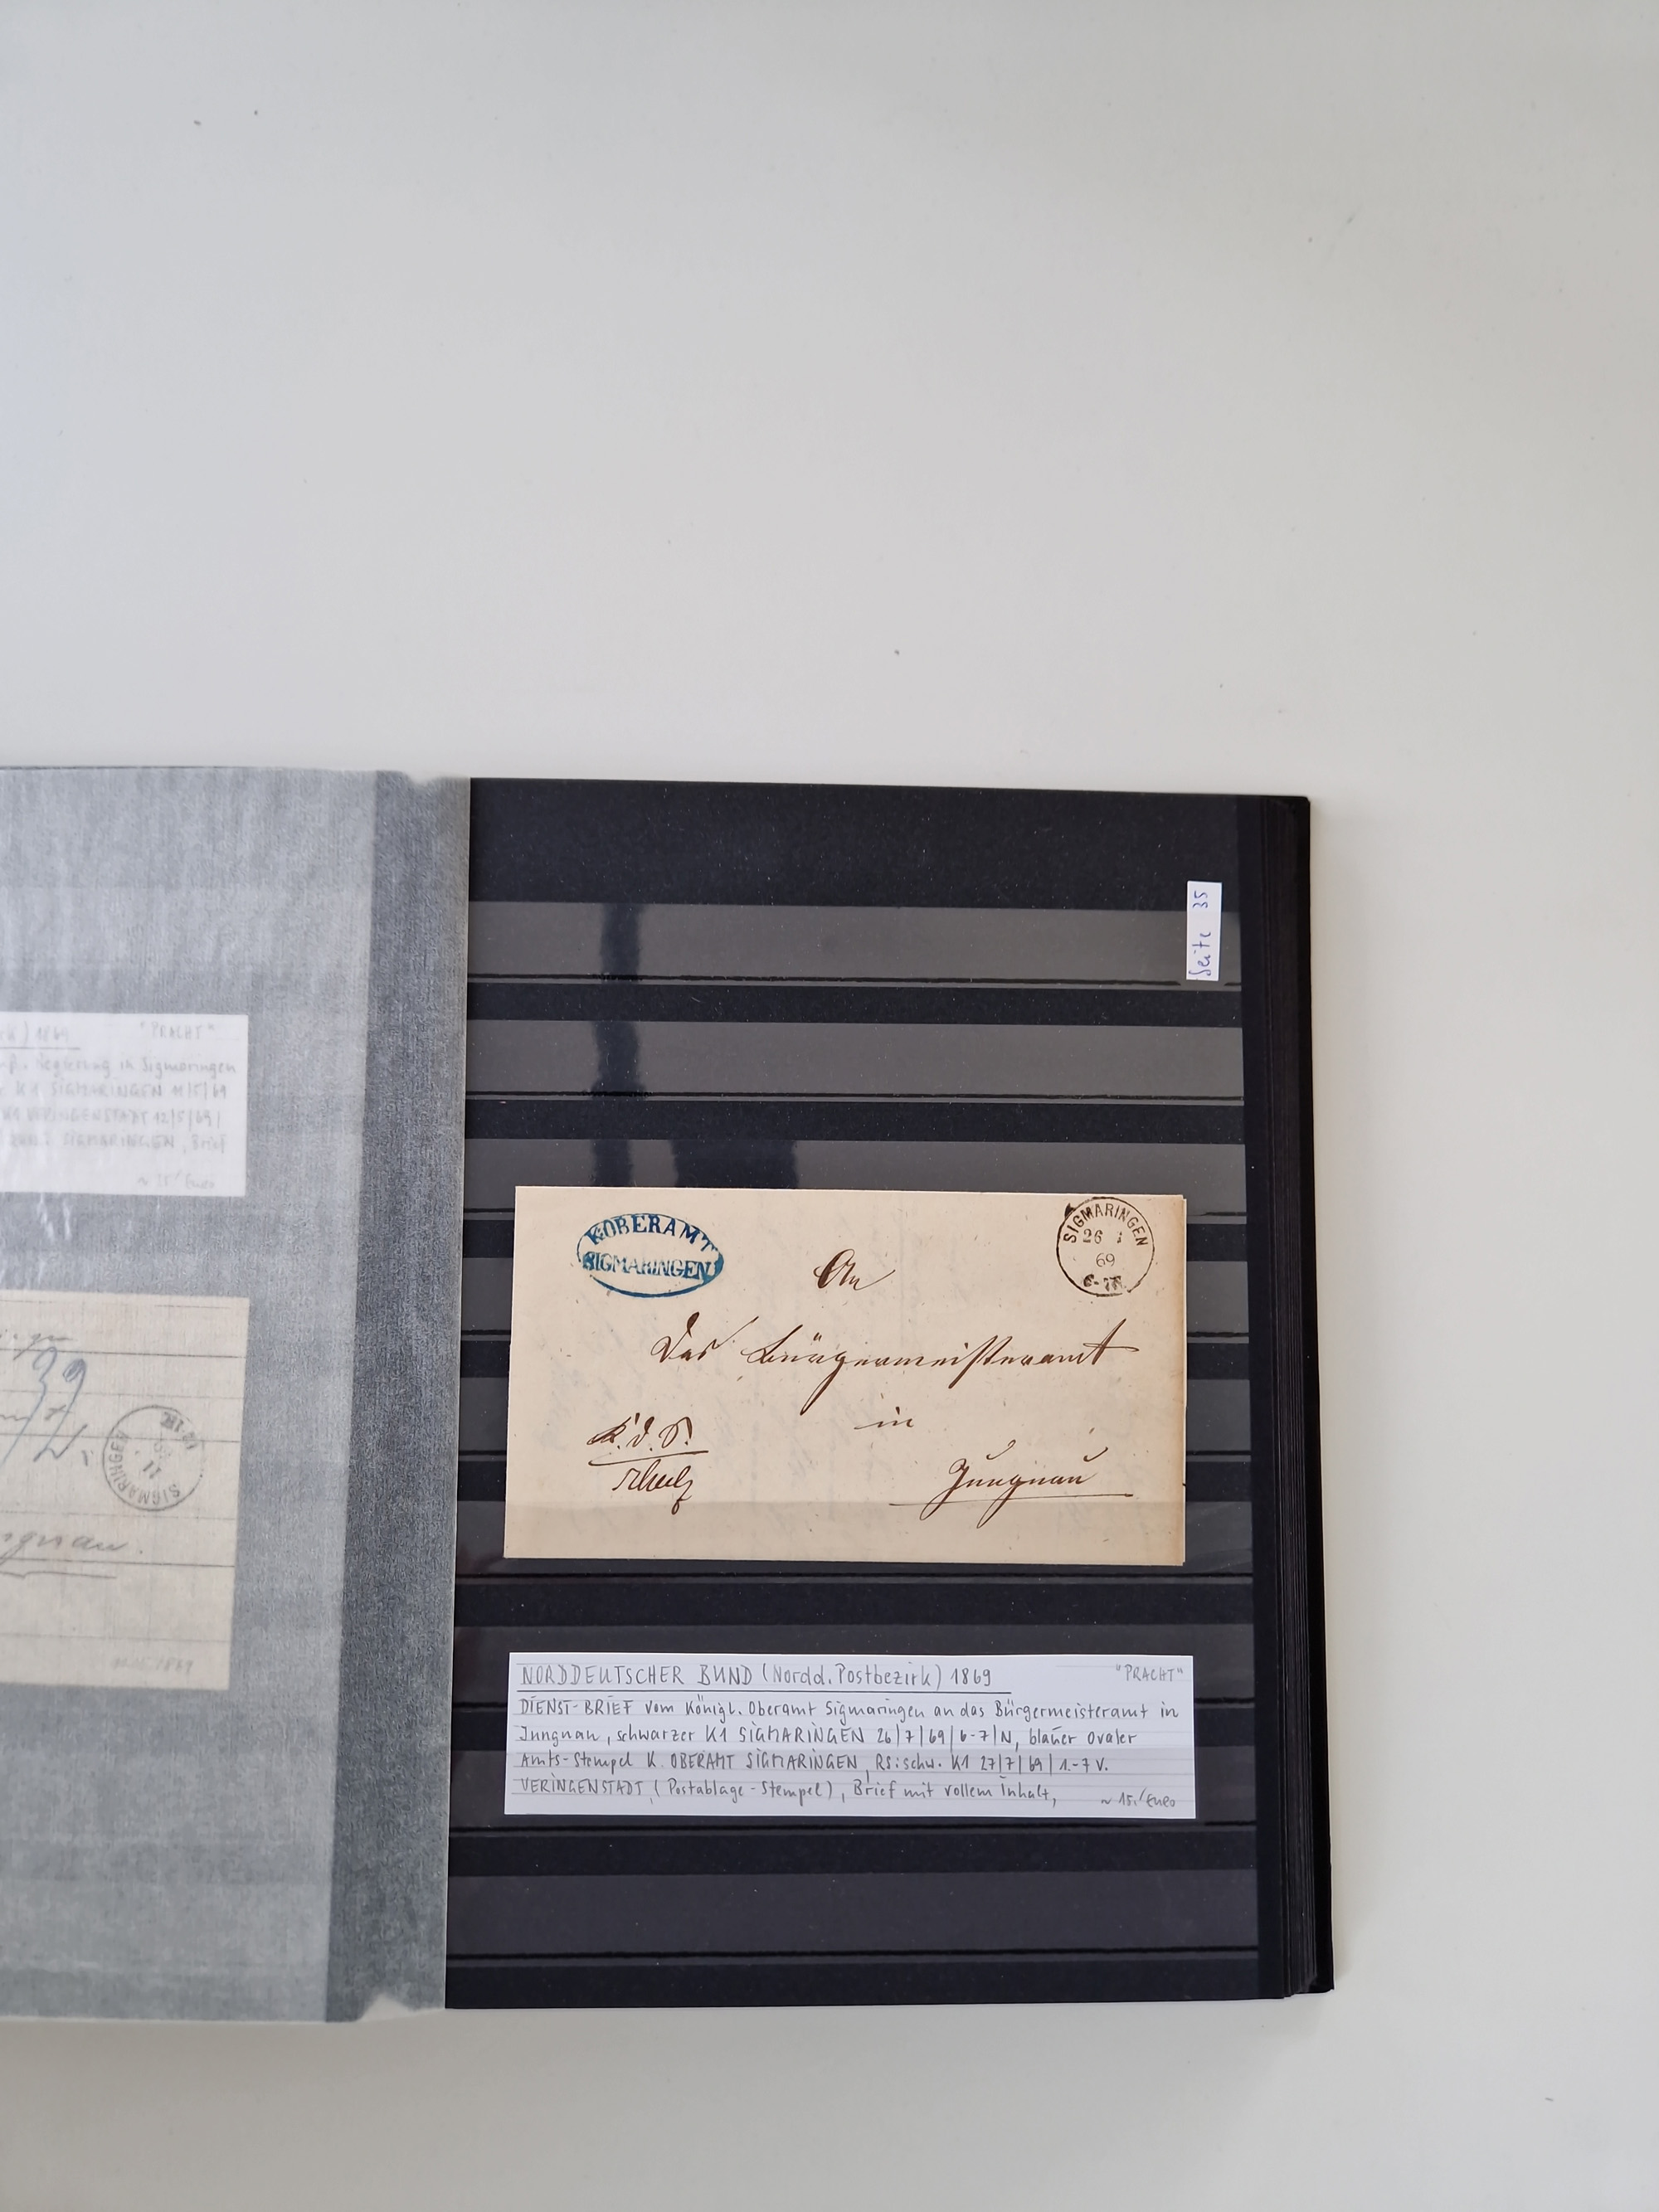 Seite 35
) 1869 "PRACHT"
Regierung in Sigmaringen
K1 SIGMARINGEN 11/5/69
K1 VERINGENSTADT 12/5/69/
SIGMARINGEN, Brief
~ 15.-/Euro
SIGMARINGEN
11
K. OBERAMT
SIGMARINGEN
SIGMARINGEN
26
69
6-7N
An
Das Bürgermeisteramt
in
K. d. S.
Jungnau
NORDDEUTSCHER BUND (Nordd. Postbezirk) 1869 "PRACHT"
DIENST-BRIEF vom Königl. Oberamt Sigmaringen an das Bürgermeisteramt in
Jungnau, schwarzer K1 SIGMARINGEN 26/7/69/6-7/N, blauer Ovaler
Amts-Stempel K. OBERAMT SIGMARINGEN, RS: schw. K1 27/7/69/1.-7 V.
VERINGENSTADT (Postablage-Stempel), Brief mit vollem Inhalt, ~ 15.-/Euro